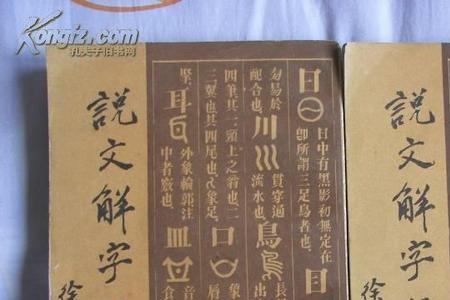 Kongfz.com
孔夫子旧书网
説文解字
徐
日
日中有黑影初無定在
即所謂三足烏者也
目
易於
配合也
川
貫穿通
流水也
鳥
長
出
四筆其一頭上之翁也二
三翼也其四尾也乀象足
口
象
唇
耳
外象輪郭注
中者竅也
皿
音
食
説文解字
徐